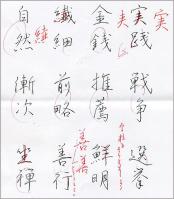 実践 戦争 選挙
金銭 推薦 鮮明
繊細 前略 善行
自然 漸次 坐禅
実
夫
繊
善善